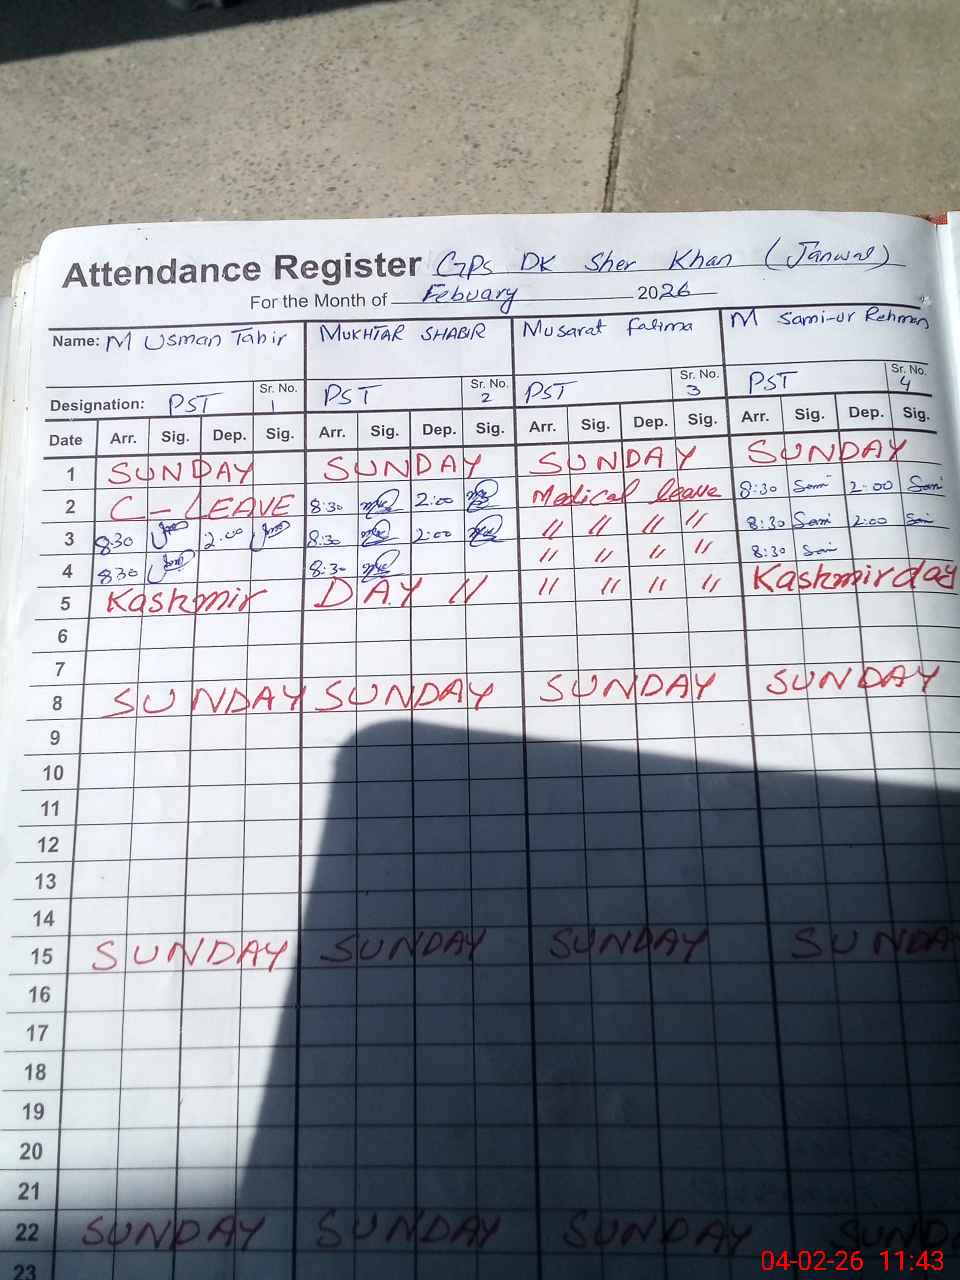 Attendance Register GPs DK Sher Khan (Janwal)
For the Month of Febuary 2026
Name: M Usman Tahir MUKHTAR SHABIR Musarat Fatima M Sami-ur Rehman
Designation: PST Sr. No. 1 PST Sr. No. 2 PST Sr. No. 3 PST Sr. No. 4
Date Arr. Sig. Dep. Sig. Arr. Sig. Dep. Sig. Arr. Sig. Dep. Sig. Arr. Sig. Dep. Sig.
1 SUNDAY SUNDAY SUNDAY SUNDAY
2 C-LEAVE 8:30 2:00 Medical leave 8:30 Sami 2:00 Sami
3 8:30 2:00 8:30 2:00 // // // // 8:30 Sami 2:00 Sami
4 8:30 8:30 // // // // 8:30 Sami
5 Kashmir DAY // // // // // Kashmir day
6
7
8 SUNDAY SUNDAY SUNDAY SUNDAY
9
10
11
12
13
14
15 SUNDAY SUNDAY SUNDAY SUNDAY
16
17
18
19
20
21
22 SUNDAY SUNDAY SUNDAY SUND
23
04-02-26 11:43